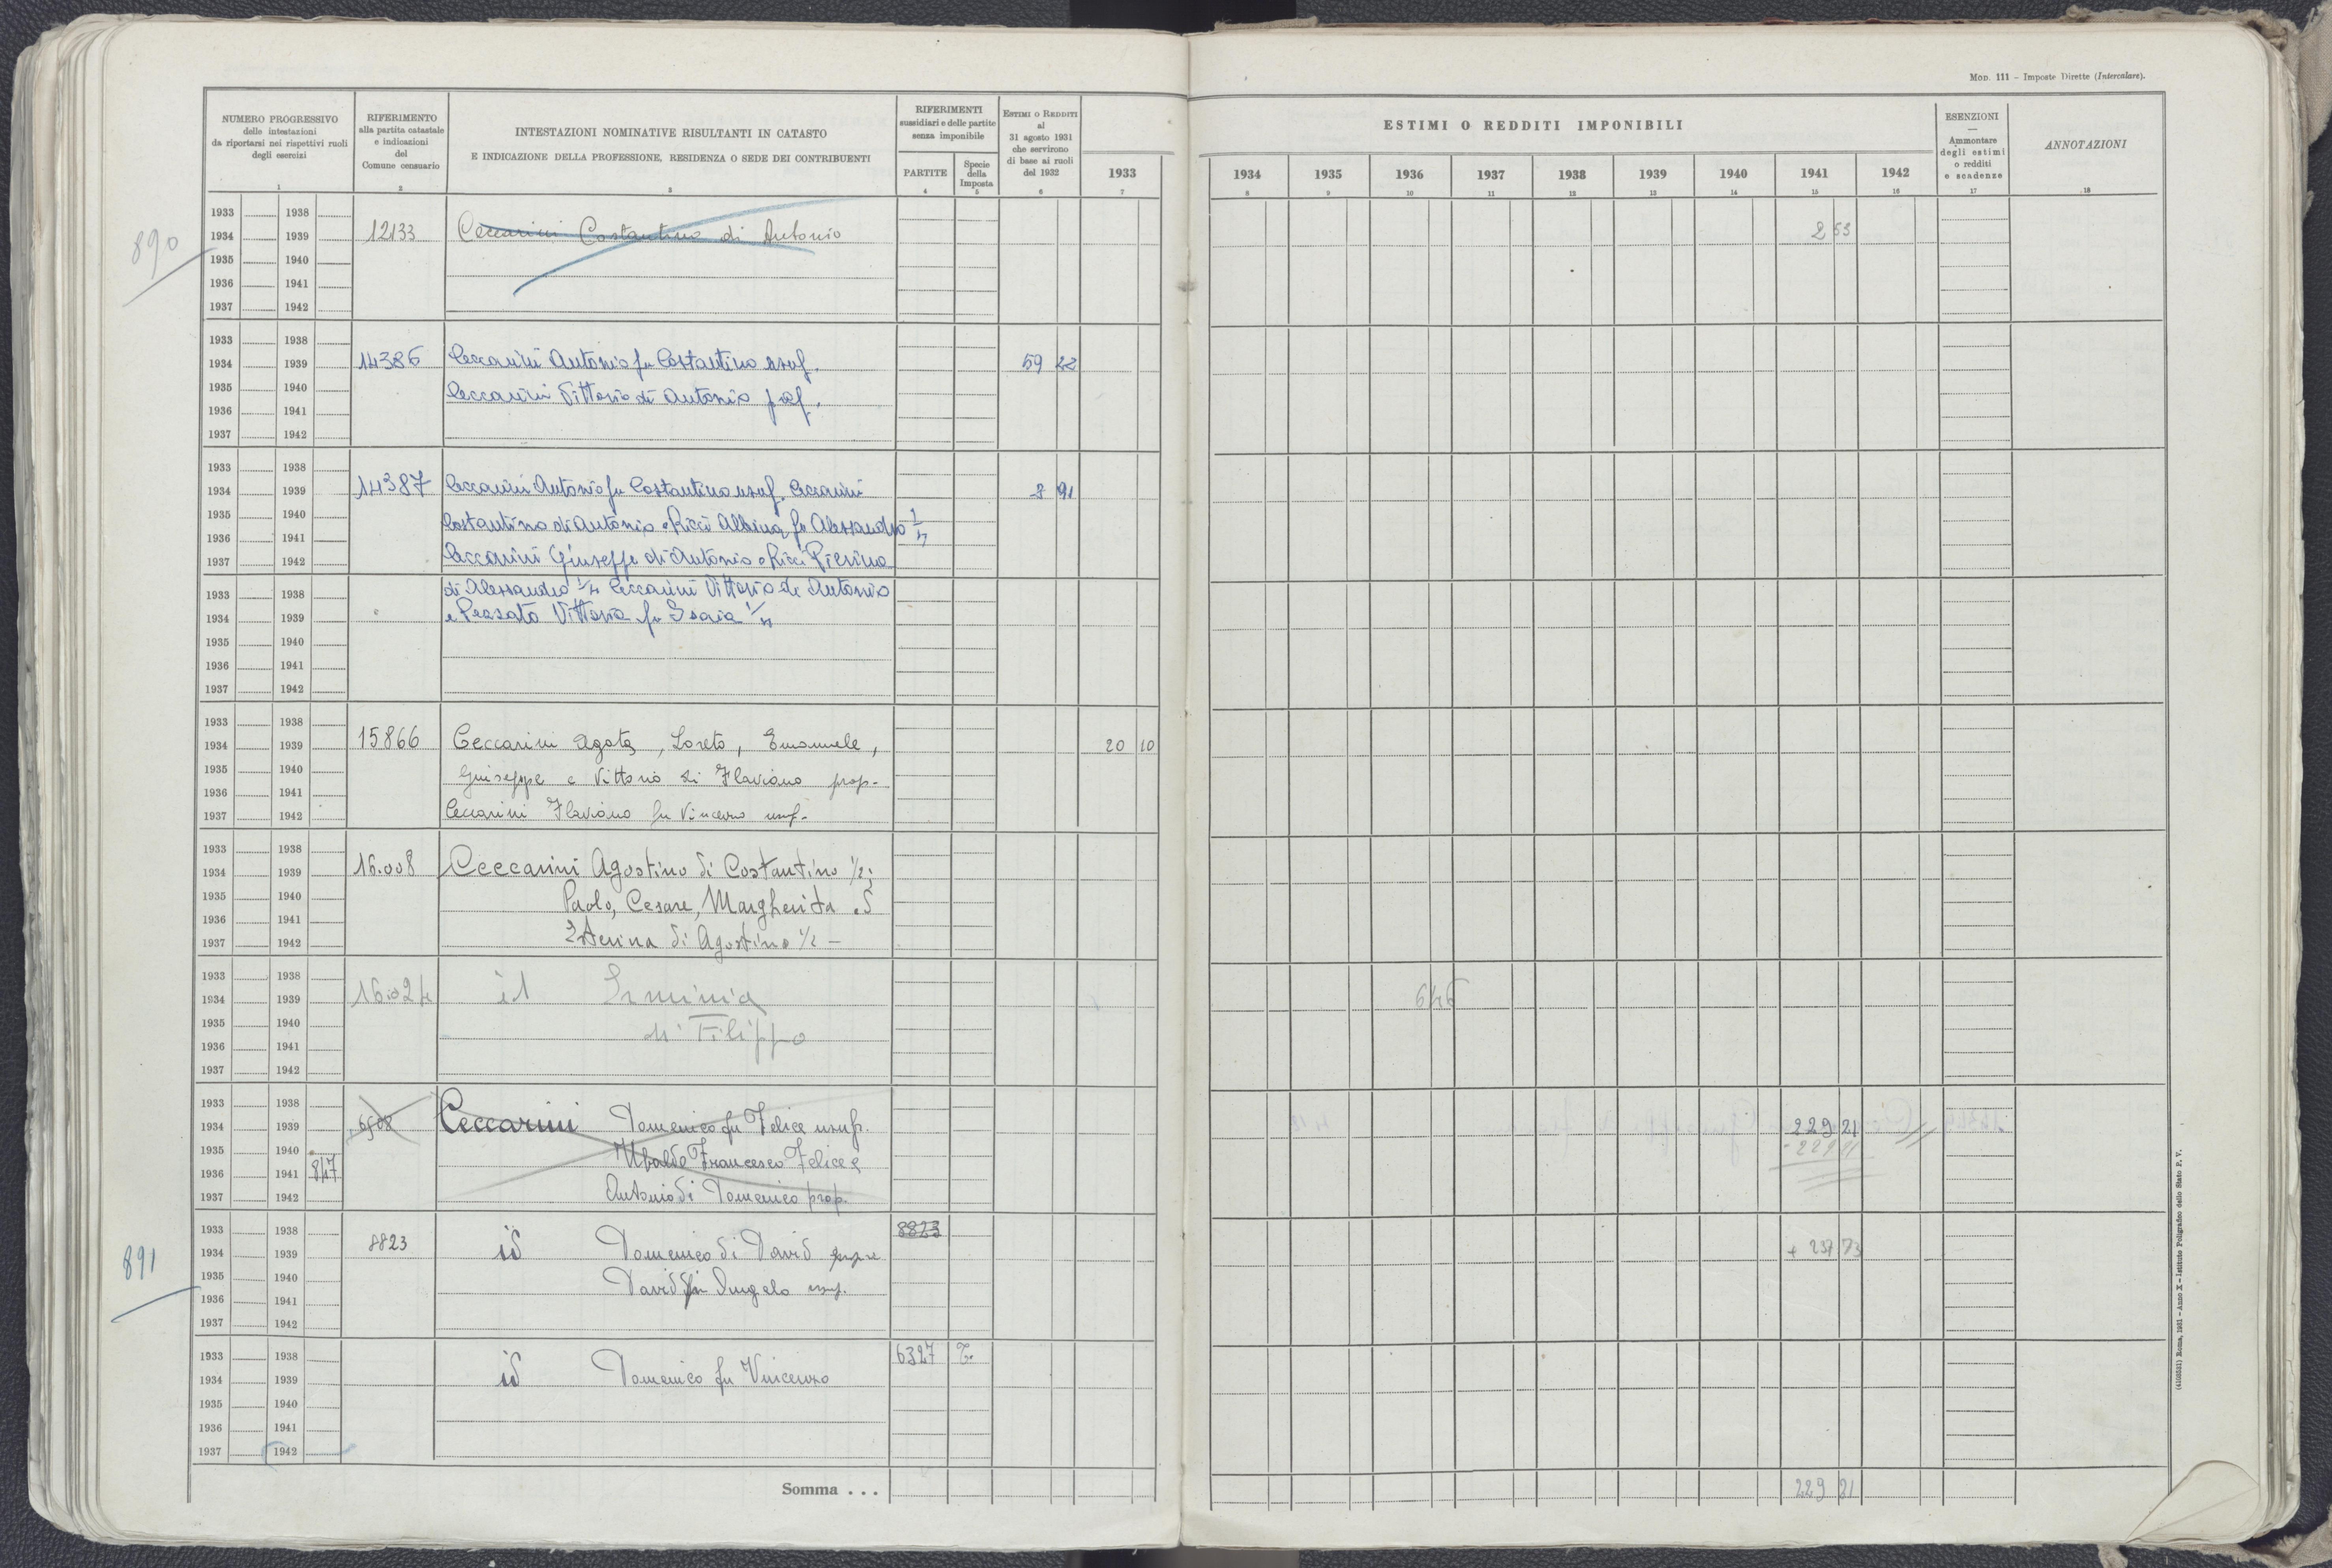 Mod. 111 - Imposte Dirette (Intercalare).
NUMERO PROGRESSIVO
delle intestazioni
da riportarsi nei rispettivi ruoli
degli esercizi
1
RIFERIMENTO
alla partita catastale
e indicazioni
del
Comune censuario
2
INTESTAZIONI NOMINATIVE RISULTANTI IN CATASTO
E INDICAZIONE DELLA PROFESSIONE, RESIDENZA O SEDE DEI CONTRIBUENTI
3
RIFERIMENTI
sussidiari e delle partite
senza imponibile
PARTITE
4
Specie
della
Imposta
5
Estimi o Redditi
al
31 agosto 1931
che servirono
di base ai ruoli
del 1932
6
1933
7
ESTIMI O REDDITI IMPONIBILI
1934 1935 1936 1937 1938 1939 1940 1941 1942
8 9 10 11 12 13 14 15 16
ESENZIONI
—
Ammontare
degli estimi
o redditi
e scadenze
17
ANNOTAZIONI
18
890
1933 1938
1934 1939 12133 Ceccarini Costantino di Antonio 2 53
1935 1940
1936 1941
1937 1942
1933 1938
1934 1939 14386 Ceccarini Antonio fu Costantino usuf. 59 22
1935 1940 Ceccarini Vittorio di Antonio
1936 1941
1937 1942
1933 1938
1934 1939 14387 Ceccarini Antonio fu Costantino usuf. Ceccarini 8 91
1935 1940 Costantino di Antonio e Ricci Albina fu Alessandro
1936 1941
1937 1942 Ceccarini Giuseppe di Antonio e Ricci Pierina
1933 1938 di Alessandro Ceccarini Vittorio di Antonio
1934 1939 e Vittoria fu Isaia
1935 1940
1936 1941
1937 1942
1933 1938
1934 1939 15866 Ceccarini Agata, Loreto, Emanuele, 20 10
1935 1940 Giuseppe e Vittorio di Flaviano prop.
1936 1941
1937 1942 Ceccarini Flaviano fu Vincenzo usuf.
1933 1938
1934 1939 16.008 Ceccarini Agostino di Costantino 1/2;
1935 1940 Paolo, Cesare, Margherita ed
1936 1941
1937 1942 Esterina di Agostino 1/2 -
1933 1938
1934 1939 id Erminia
1935 1940 di Filippo
1936 1941
1937 1942
1933 1938
1934 1939 6508 Ceccarini Domenico fu Felice usuf. 229 21
1935 1940 Ubaldo Francesco Felice e - 229 21
1936 1941 847
1937 1942 Antonio di Domenico prop.
891
1933 1938 8823
1934 1939 8823 id Domenico di David + 237 73
1935 1940 David fu Angelo usuf.
1936 1941
1937 1942
1933 1938 6327 T.
1934 1939 id Domenico fu Vincenzo
1935 1940
1936 1941
1937 1942
Somma . . . 229 21
(4103331) Roma, 1931 - Anno X - Istituto Poligrafico dello Stato P. V.